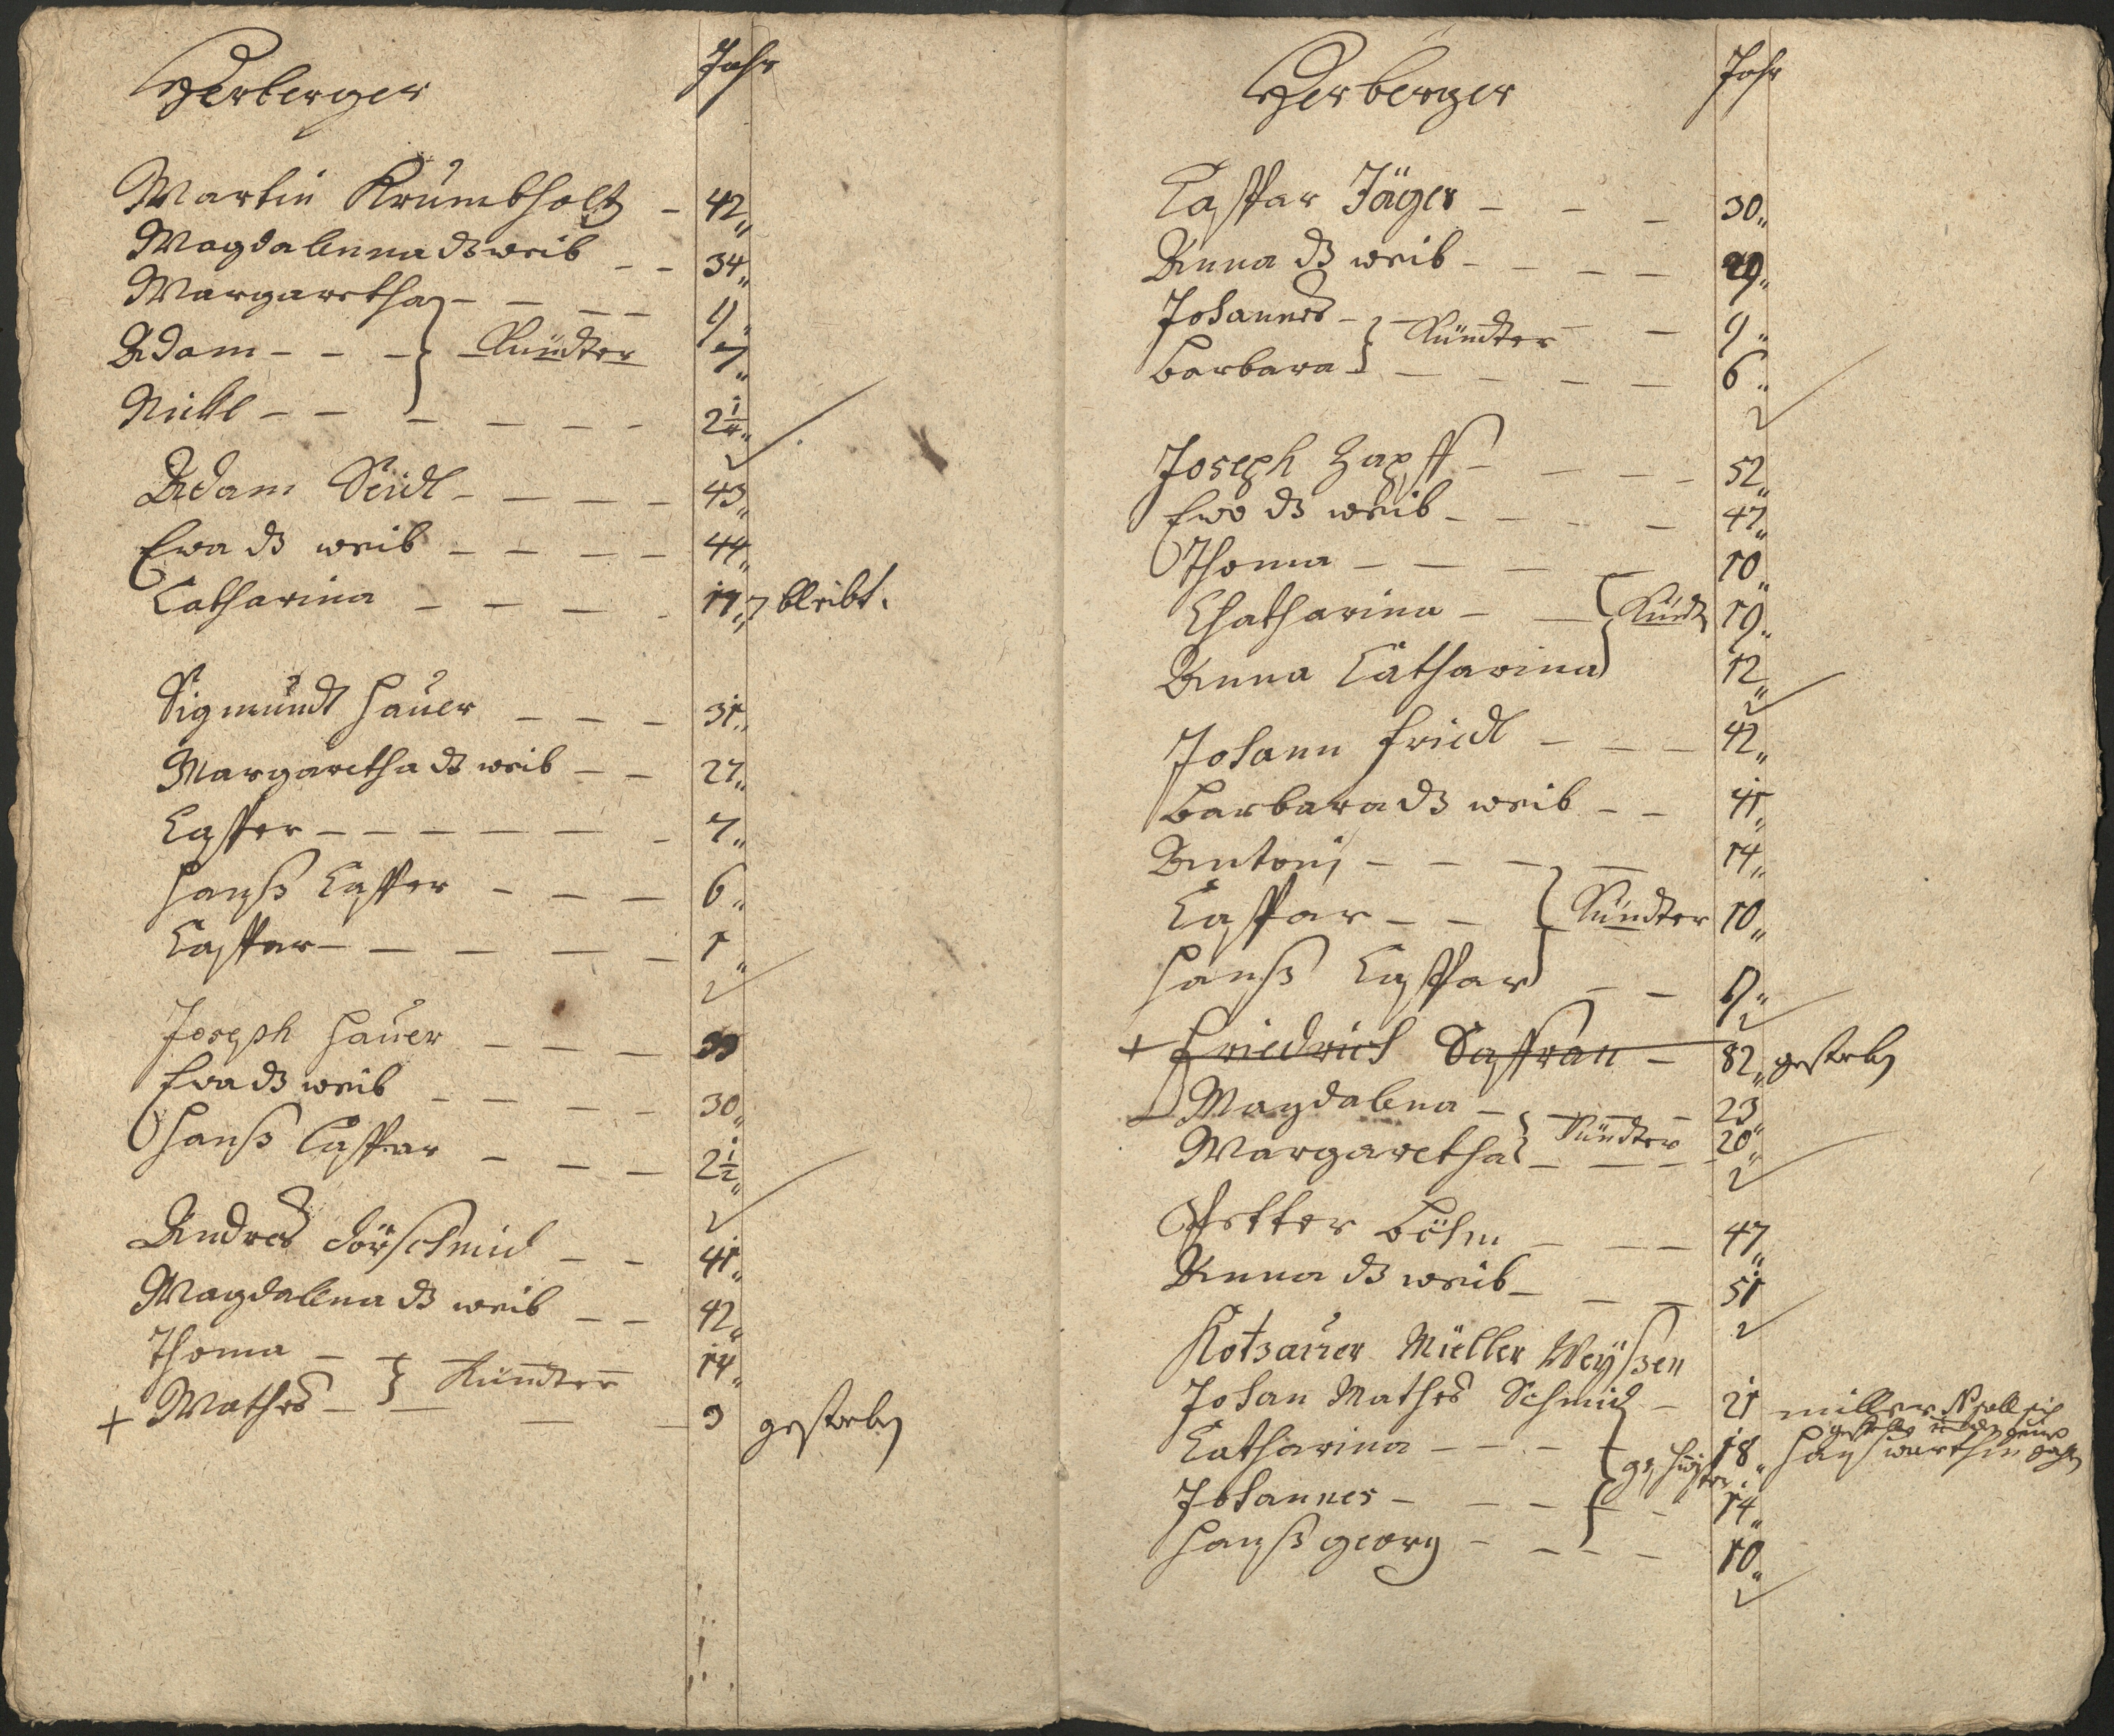 Herberger Jahr
Martin Krumbholtz - 42
Magdalenna ds weib - - 34
Margaretha - - - - 9
Adam - - - Kündter 7
Nickl - - - - - - 2 1/4
Adam Seidl - - - - - 43
Ewa ds weib - - - - 44
Catharina - - - - 17 bleibt.
Sigmundt Hauer - - - 31
Margaretha ds weib - - 27
Casper - - - - - - - 7
Hanß Casper - - - 6
Caspar - - - - - 1
Joseph Hauer - - -
Ewa ds weib - - - - 30
Hanß Caspar - - - 2 1/2
Andres Dörschmid - - 41
Magdalena ds weib - - 42
Thoma - - Kündter 14
+ Mathes - - - - 9 gestorben
Herberger Jahr
Caspar Jäger - - - 30
Anna ds weib - - - - 29
Johannes - - - - 9
Barbara - Kündter - - - - 6
Joseph Zapff - - - - 52
Ewa ds weib - - - - 47
Thoma - - - - 10
Chatharina - - Kündt 19
Anna Catharina 12
Johann Friedl - - - 42
Barbara ds weib - - 41
Antonj - - - - 14
Caspar - - Kündter 10
Hanß Caspar - - 9
+ Friedrich Saffran - 82 gestorben
Magdalena - - - - 23
Margaretha Kündter - - - - 20
Petter Böhm - - - 47
Anna ds weib - - - 51
Kotzauer Müeller Weyßen
Johan Mathes Schmid - 21 miller
Catharina - - - - geschwister 18
Johannes - - - - - 14
Hanß georg - - - - 10